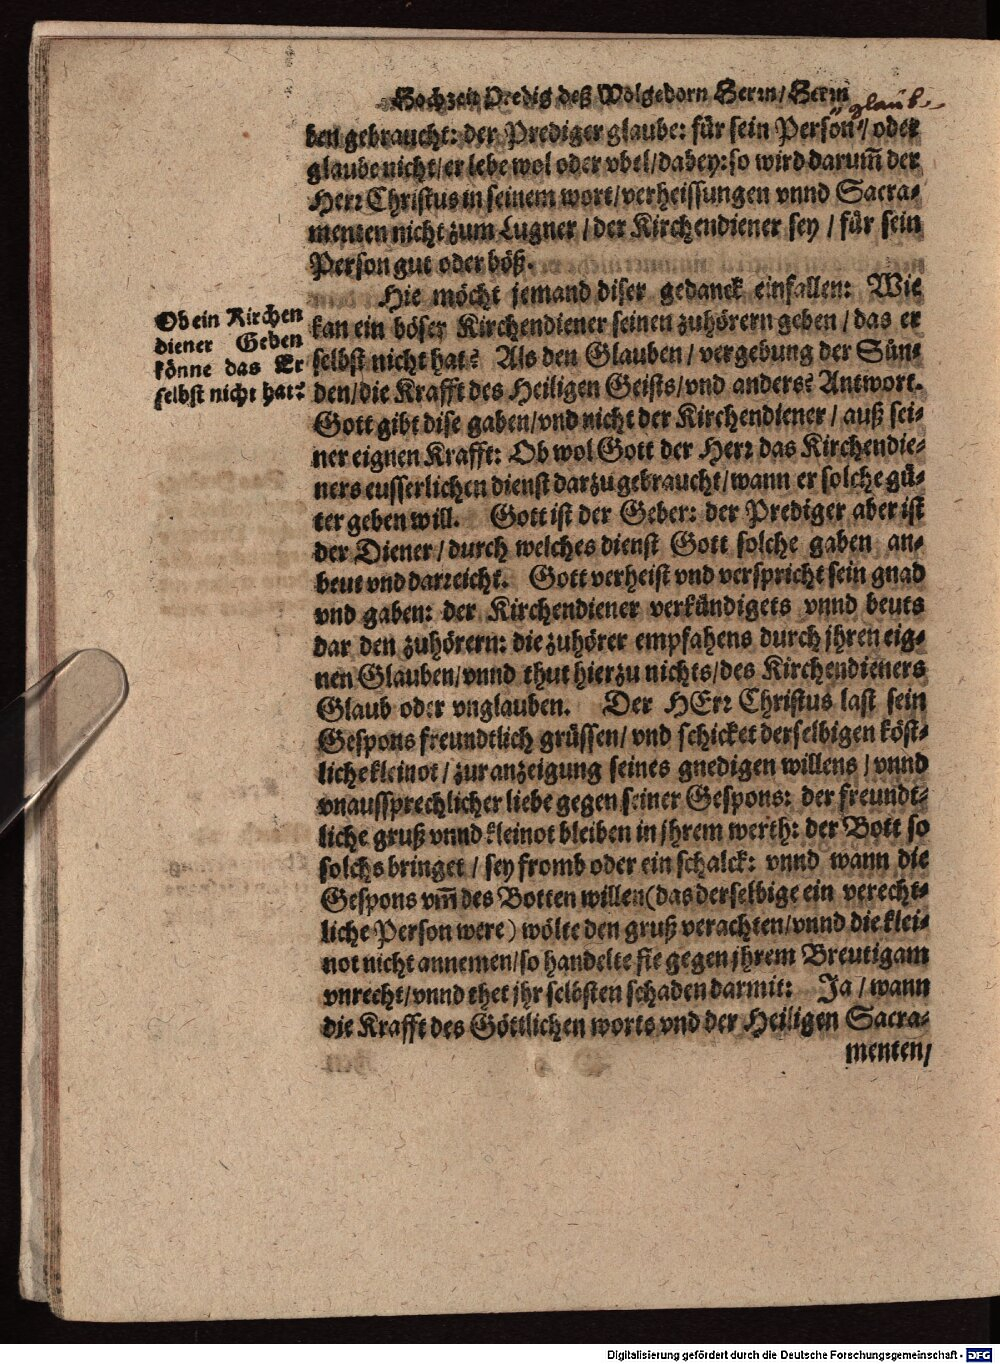 Hochzeit Predig deß Wolgeborn Herrn/ Herrn
glaub
ben gebraucht: der Prediger glaube: für sein Person/ oder
glaube nicht/ er lebe wol oder vbel/ dabey: so wird darum̃ der
Herr Christus in seinem wort/ verheissungen vnnd Sacra-
menten nicht zum Lugner / der Kirchendiener sey / für sein
Person gut oder böß.
Hie möcht jemand diser gedanck einfallen: Wie
kan ein böser Kirchendiener seinen zuhörern geben / das er
selbst nicht hat? Als den Glauben / vergebung der Sün-
den/ die Krafft des Heiligen Geists/ vnd anders? Antwort.
Gott gibt dise gaben/ vnd nicht der Kirchendiener / auß sei-
ner eignen Krafft: Ob wol Gott der Herr das Kirchendie-
ners eusserlichen dienst darzu gebraucht/ wann er solche gü-
ter geben will. Gott ist der Geber: der Prediger aber ist
der Diener / durch welches dienst Gott solche gaben an-
beut vnd darreicht. Gott verheist vnd verspricht sein gnad
vnd gaben: der Kirchendiener verkündigets vnnd beuts
dar den zuhörern: die zuhörer empfahens durch jhren eig-
nen Glauben/ vnnd thut hierzu nichts/ des Kirchendieners
Glaub oder vnglauben. Der HErr Christus last sein
Gespons freundtlich grüssen/ vnd schicket derselbigen köst-
liche kleinot / zur anzeigung seines gnedigen willens / vnnd
vnaussprechlicher liebe gegen seiner Gespons: der freundt-
liche gruß vnnd kleinot bleiben in jhrem werth: der Bott so
solchs bringet / sey fromb oder ein schalck: vnnd wann die
Gespons vm̃ des Botten willen (das derselbige ein verecht-
liche Person were) wölte den gruß verachten/ vnnd die klei-
not nicht annemen/ so handelte sie gegen jhrem Breutigam
vnrecht/ vnnd thet jhr selbsten schaden darmit: Ja / wann
die Krafft des Göttlichen worts vnd der Heiligen Sacra-
menten/
Ob ein Kirchen
diener Geben
könne das Er
selbst nicht hat?
Digitalisierung gefördert durch die Deutsche Forschungsgemeinschaft - DFG